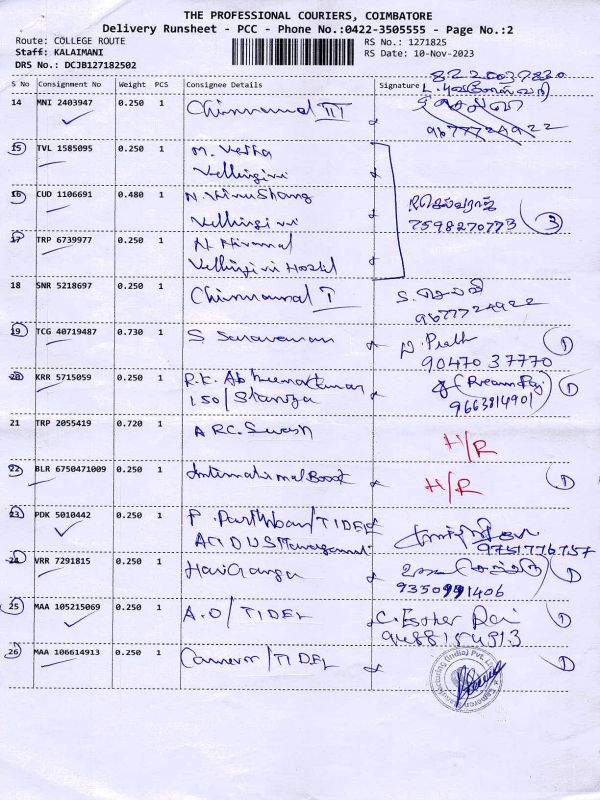 THE PROFESSIONAL COURIERS, COIMBATORE
Delivery Runsheet - PCC - Phone No.:0422-3505555 - Page No.:2
Route: COLLEGE ROUTE RS No.: 1271825
Staff: KALAIMANI RS Date: 10-Nov-2023
DRS No.: DCJB127182502
8220037830
S No Consignment No Weight PCS Consignee Details Signature
14 MNI 2403947 0.250 1 Chinnamal III
9677724922
15 TVL 1585095 0.250 1 M.
Vellingiri
16 CUD 1106691 0.480 1 N.
Vellingiri 7598270773 3
17 TRP 6739977 0.250 1 N. Nirmal
Vellingiri Hostel
18 SNR 5218697 0.250 1 Chinnamal I S. செல்வி
9677724922
19 TCG 40719487 0.730 1 S Saravanan 1
90470 37770
20 KRR 5715059 0.250 1 R.K. 1
150/ 9663814901
21 TRP 2055419 0.720 1 A R.C. H/R
22 BLR 6750471009 0.250 1 International Book H/R 1
23 PDK 5010442 0.250 1 P. /TIDEL
9751776757
24 VRR 7291815 0.250 1 1
9350991406
25 MAA 105215069 0.250 1 A.O/TIDEL C. Esther Rai 1
9488154313
26 MAA 106614913 0.250 1 Cameron/TIDEL 1
Manufacturing (India) Pvt.